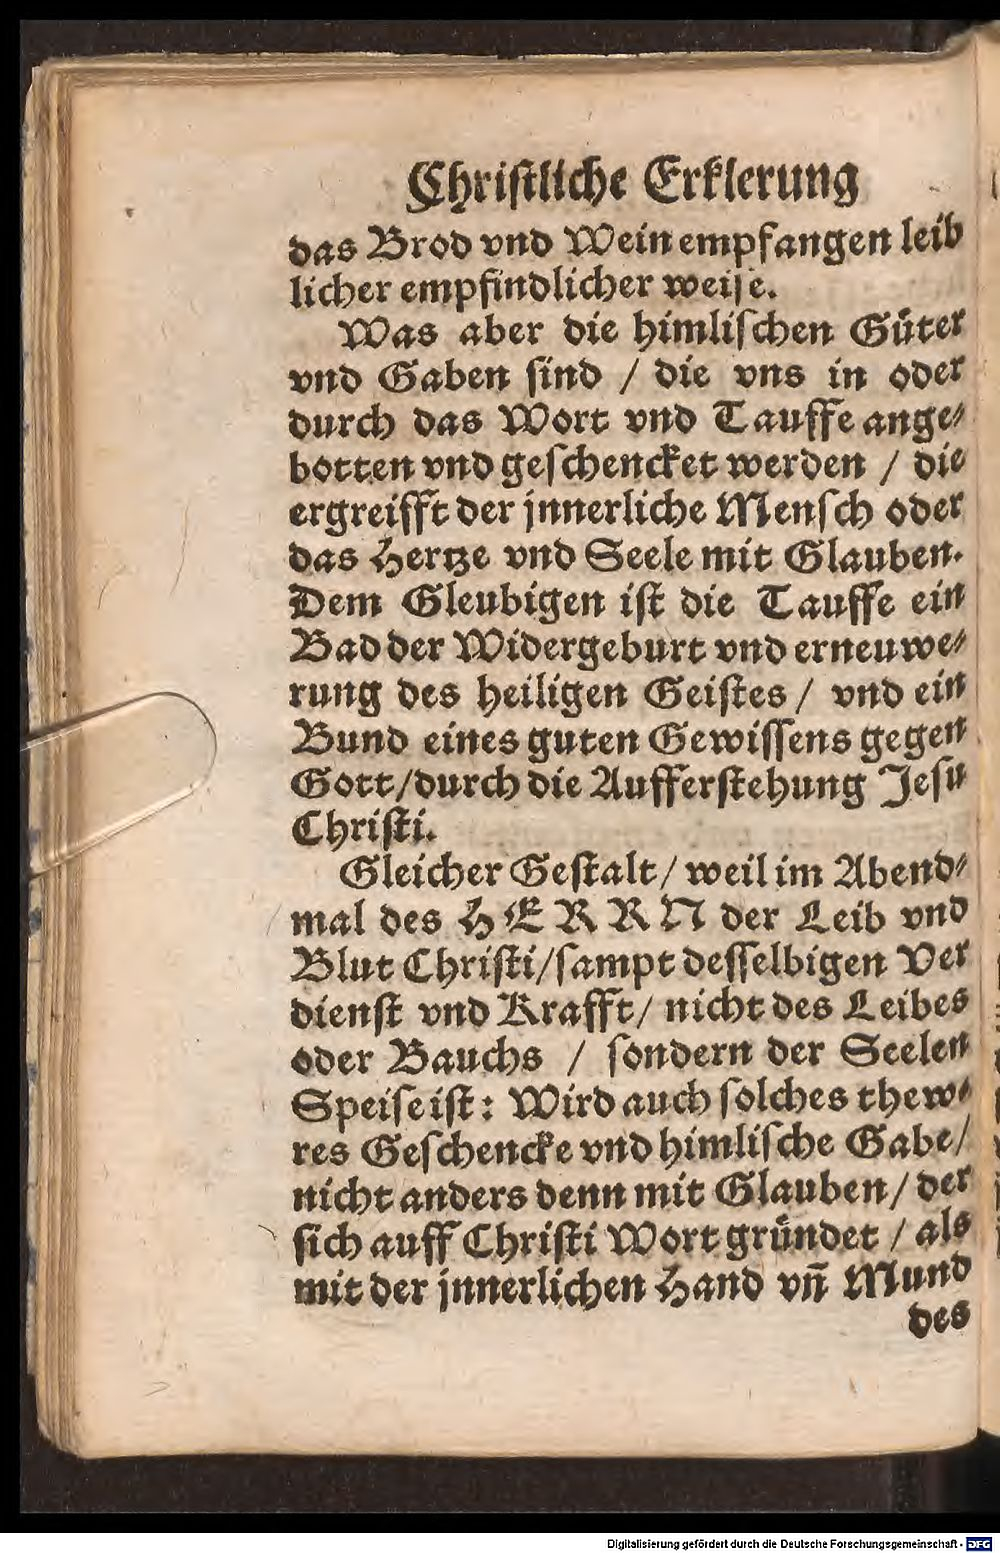 Chriſtliche Erklerung
das Brod vnd Wein empfangen leib
licher empfindlicher weiſe.
Was aber die himliſchen Guͤter
vnd Gaben ſind / die vns in oder
durch das Wort vnd Tauffe ange⸗
botten vnd geſchencket werden / die
ergreifft der jnnerliche Menſch oder
das Hertze vnd Seele mit Glauben.
Dem Gleubigen iſt die Tauffe ein
Bad der Widergeburt vnd erneuwe⸗
rung des heiligen Geiſtes / vnd ein
Bund eines guten Gewiſſens gegen
Gott/durch die Aufferſtehung Jeſu
Chriſti.
Gleicher Geſtalt/ weil im Abend⸗
mal des HERRN der Leib vnd
Blut Chriſti/ſampt deſſelbigen Ver
dienſt vnd Krafft/ nicht des Leibes
oder Bauchs / ſondern der Seelen
Speiſe iſt: Wird auch ſolches thew⸗
res Geſchencke vnd himliſche Gabe/
nicht anders denn mit Glauben/ der
ſich auff Chriſti Wort gruͤndet / als
mit der jnnerlichen Hand vn̄ Mund
des
Digitalisierung gefördert durch die Deutsche Forschungsgemeinschaft - DFG